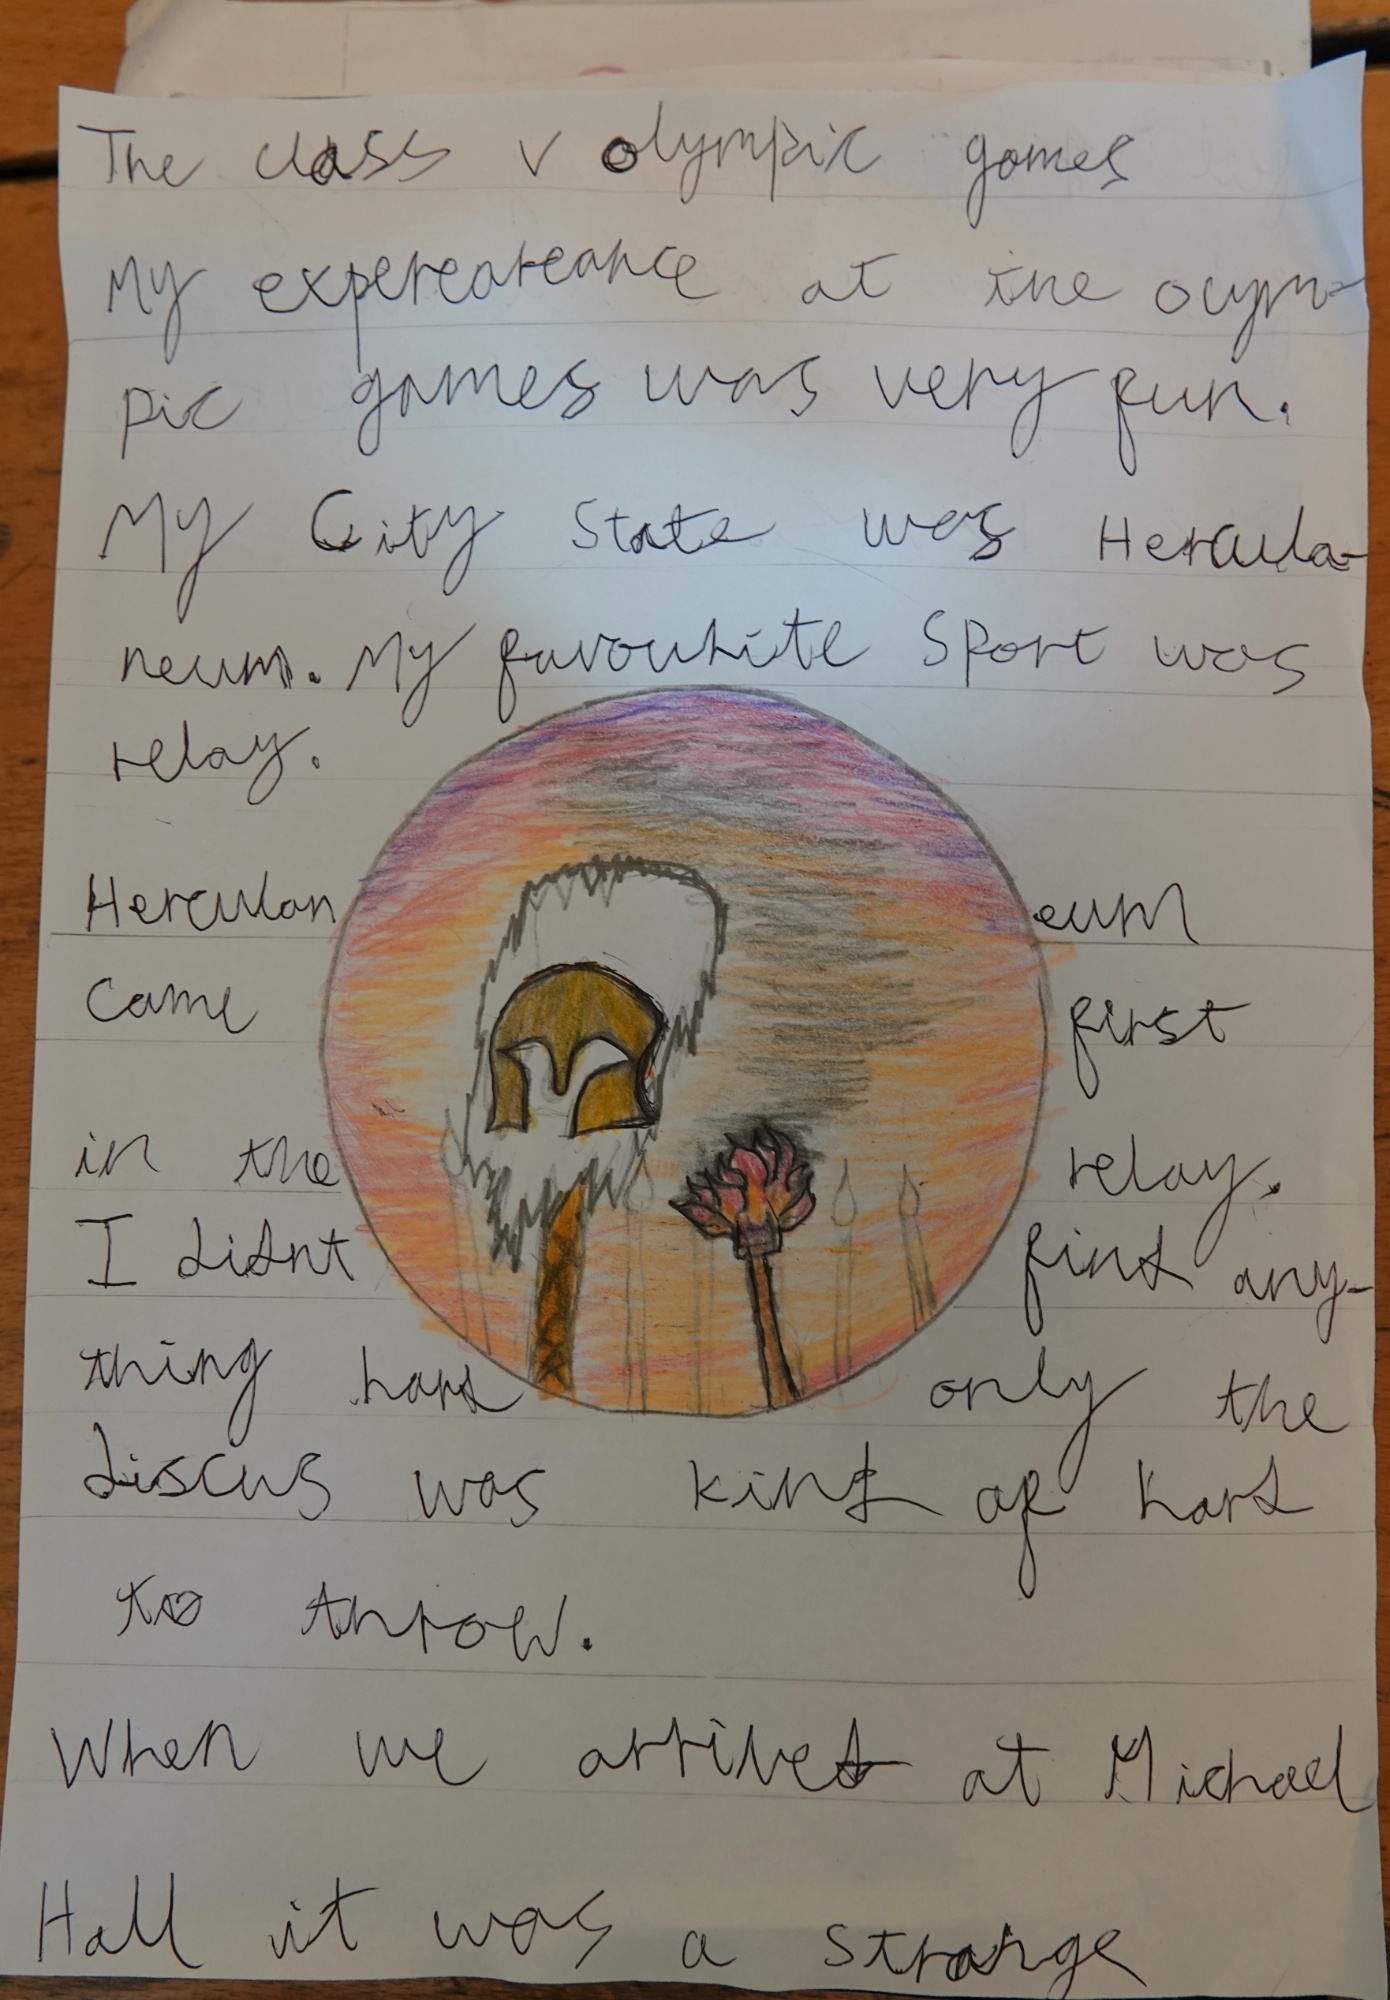 The class v olympic games
My expereareance at the olym-
pic games was very fun.
My City State was Hercula-
neum. My favourite Sport was
relay.
Herculan eum
came first
in the relay.
I didnt find any-
thing hard only the
discus was kind of hard
to throw.
When we arrived at Michael
Hall it was a strange